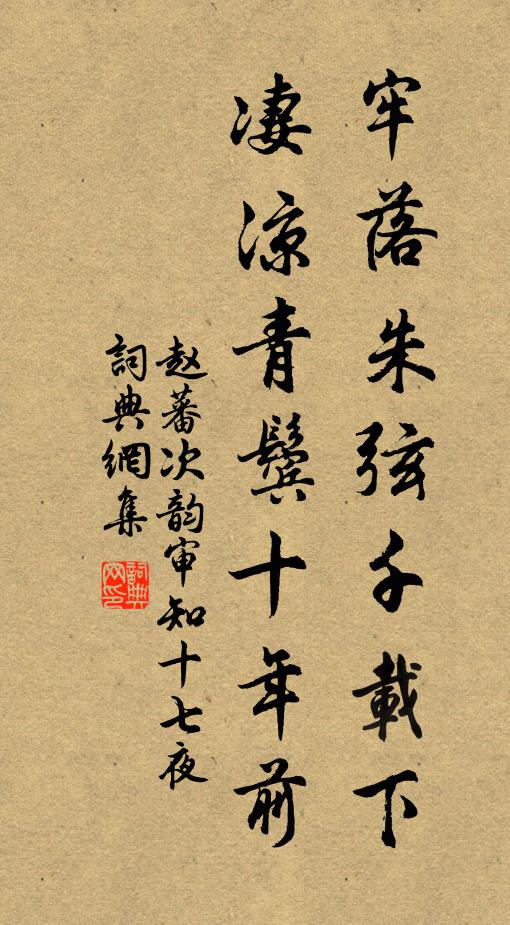 牢落朱弦千載下
凄涼青鬓十年前
赵蕃次韵审知十七夜
詞典網集
詞典网印